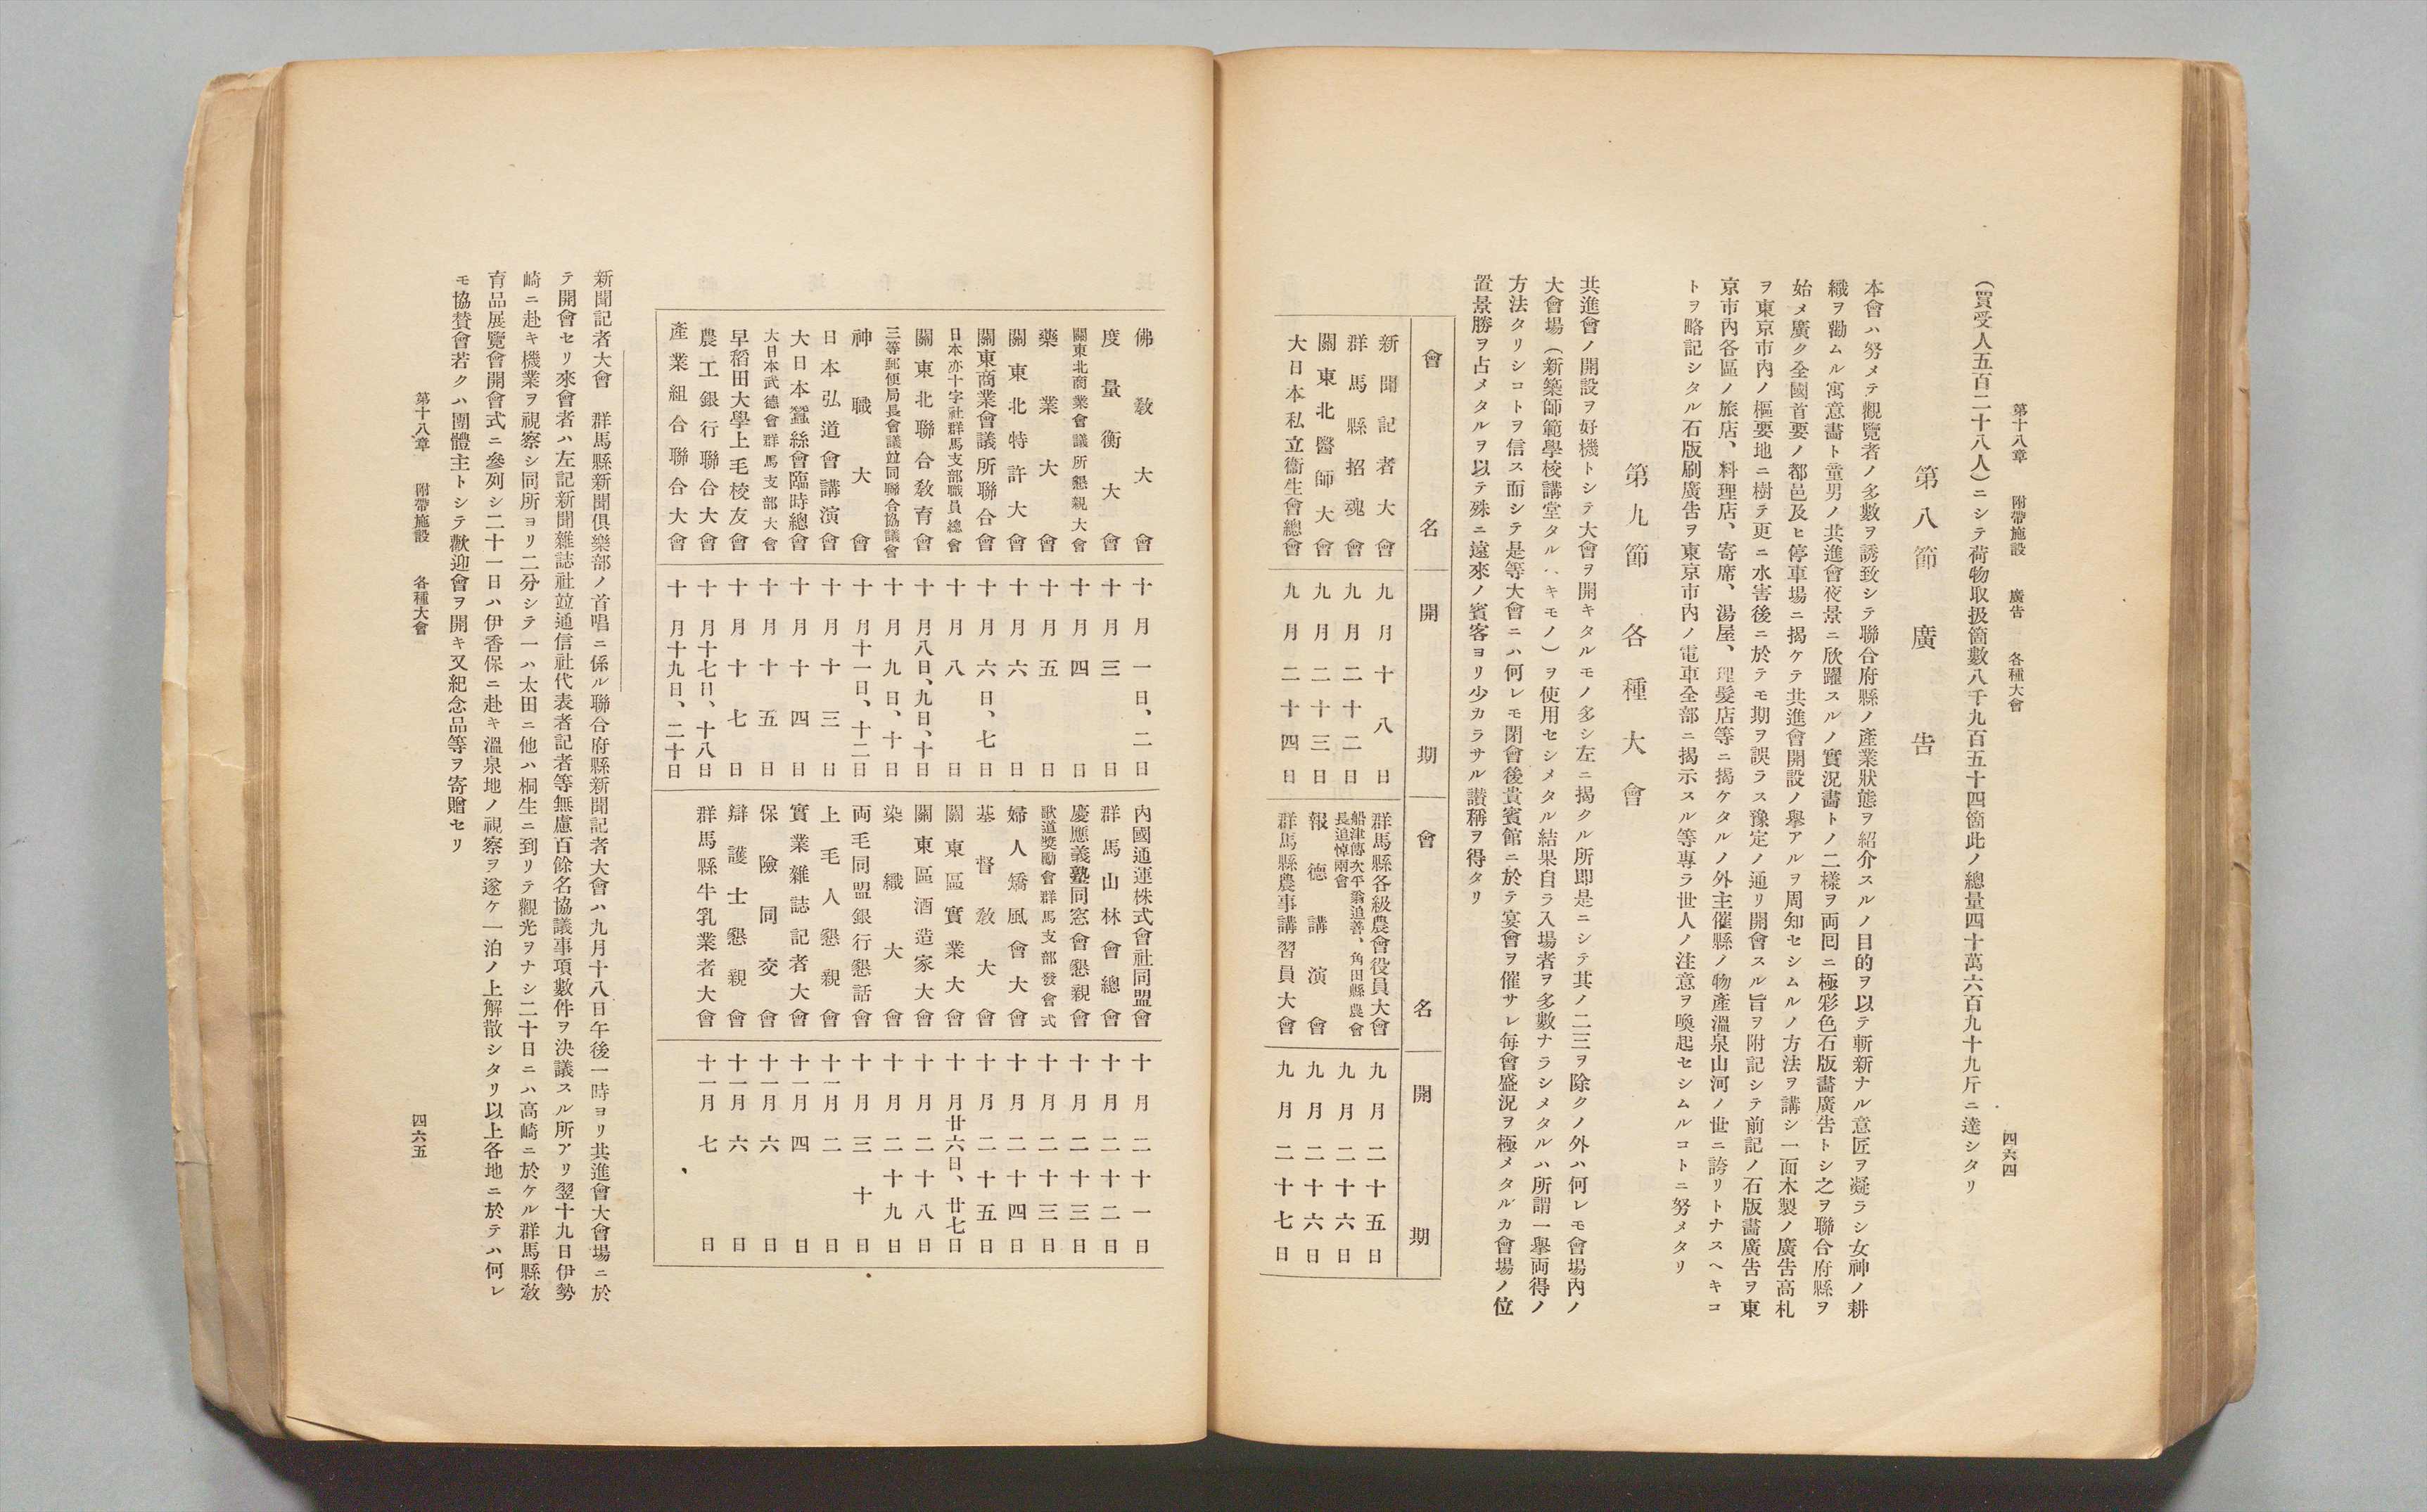 第十八章 附帶施設 廣告 各種大會 四六四
(買受人五百二十八人)ニシテ荷物取扱箇數八千九百五十四箇此ノ總量四十萬六百九十九斤ニ達シタリ
第八節 廣告
本會ハ努メテ觀覽者ノ多數ヲ誘致シテ聯合府縣ノ產業狀態ヲ紹介スルノ目的ヲ以テ斬新ナル意匠ヲ凝ラシ女神ノ耕
織ヲ勸ムル寓意畵ト童男ノ共進會夜景ニ欣躍スルノ實況畵トノ二樣ヲ両回ニ極彩色石版畵廣告トシ之ヲ聯合府縣ヲ
始メ廣ク全國首要ノ都邑及ヒ停車場ニ揭ケテ共進會開設ノ擧アルヲ周知セシムルノ方法ヲ講シ一面木製ノ廣告高札
ヲ東京市內ノ樞要地ニ樹テ更ニ水害後ニ於テモ期ヲ誤ラス豫定ノ通リ開會スル旨ヲ附記シテ前記ノ石版畵廣告ヲ東
京市內各區ノ旅店、料理店、寄席、湯屋、理髮店等ニ揭ケタルノ外主催縣ノ物產溫泉山河ノ世ニ誇リトナスヘキコ
トヲ略記シタル石版刷廣告ヲ東京市內ノ電車全部ニ揭示スル等專ラ世人ノ注意ヲ喚起セシムルコトニ努メタリ
第九節 各種大會
共進會ノ開設ヲ好機トシテ大會ヲ開キタルモノ多シ左ニ揭クル所即是ニシテ其ノ二三ヲ除クノ外ハ何レモ會場內ノ
大會場(新築師範學校講堂タルハキモノ)ヲ使用セシメタル結果自ラ入場者ヲ多數ナラシメタルハ所謂一擧両得ノ
方法タリシコトヲ信ス而シテ是等大會ニハ何レモ閉會後貴賓館ニ於テ宴會ヲ催サレ每會盛況ヲ極メタルカ會場ノ位
置景勝ヲ占メタルヲ以テ殊ニ遠來ノ賓客ヨリ少カラサル讃稱ヲ得タリ
會名 開期 會名 開期
新聞記者大會 九月十八日 群馬縣各級農會役員大會 九月二十五日
群馬縣招魂會 九月二十二日 船津傳次平翁追善、角田縣農會長追悼兩會 九月二十六日
關東北醫師大會 九月二十三日 報德講演會 九月二十六日
大日本私立衞生會總會 九月二十四日 群馬縣農事講習員大會 九月二十七日
佛敎大會 十月一日、二日 內國通運株式會社同盟會 十月二十一日
度量衡大會 十月三日 群馬山林會總會 十月二十二日
關東北商業會議所懇親大會 十月四日 慶應義塾同窓會懇親會 十月二十三日
藥業大會 十月五日 歌道獎勵會群馬支部發會式 十月二十三日
關東北特許大會 十月六日 婦人矯風會大會 十月二十四日
關東商業會議所聯合會 十月六日、七日 基督敎大會 十月二十五日
日本亦十字社群馬支部職員總會 十月八日 關東區實業大會 十月廿六日、廿七日
關東北聯合敎育會 十月八日、九日、十日 關東區酒造家大會 十月二十八日
三等郵便局長會議竝同聯合協議會 十月九日、十日 染織大會 十月二十九日
神職大會 十月十一日、十二日 両毛同盟銀行懇話會 十月三十日
日本弘道會講演會 十月十三日 上毛人懇親會 十一月二日
大日本蠶絲會臨時總會 十月十四日 實業雜誌記者大會 十一月四日
大日本武德會群馬支部大會 十月十五日 保險同交會 十一月六日
早稻田大學上毛校友會 十月十七日 辯護士懇親會 十一月六日
農工銀行聯合大會 十月十七日、十八日 群馬縣牛乳業者大會 十一月七日
產業組合聯合大會 十月十九日、二十日
新聞記者大會 群馬縣新聞俱樂部ノ首唱ニ係ル聯合府縣新聞記者大會ハ九月十八日午後一時ヨリ共進會大會場ニ於
テ開會セリ來會者ハ左記新聞雜誌社竝通信社代表者記者等無慮百餘名協議事項數件ヲ決議スル所アリ翌十九日伊勢
崎ニ赴キ機業ヲ視察シ同所ヨリ二分シテ一ハ太田ニ他ハ桐生ニ到リテ觀光ヲナシ二十日ニハ高崎ニ於ケル群馬縣敎
育品展覽會開會式ニ參列シ二十一日ハ伊香保ニ赴キ溫泉地ノ視察ヲ遂ケ一泊ノ上解散シタリ以上各地ニ於テハ何レ
モ協贊會若クハ團體主トシテ歡迎會ヲ開キ又紀念品等ヲ寄贈セリ
第十八章 附帶施設 各種大會 四六五